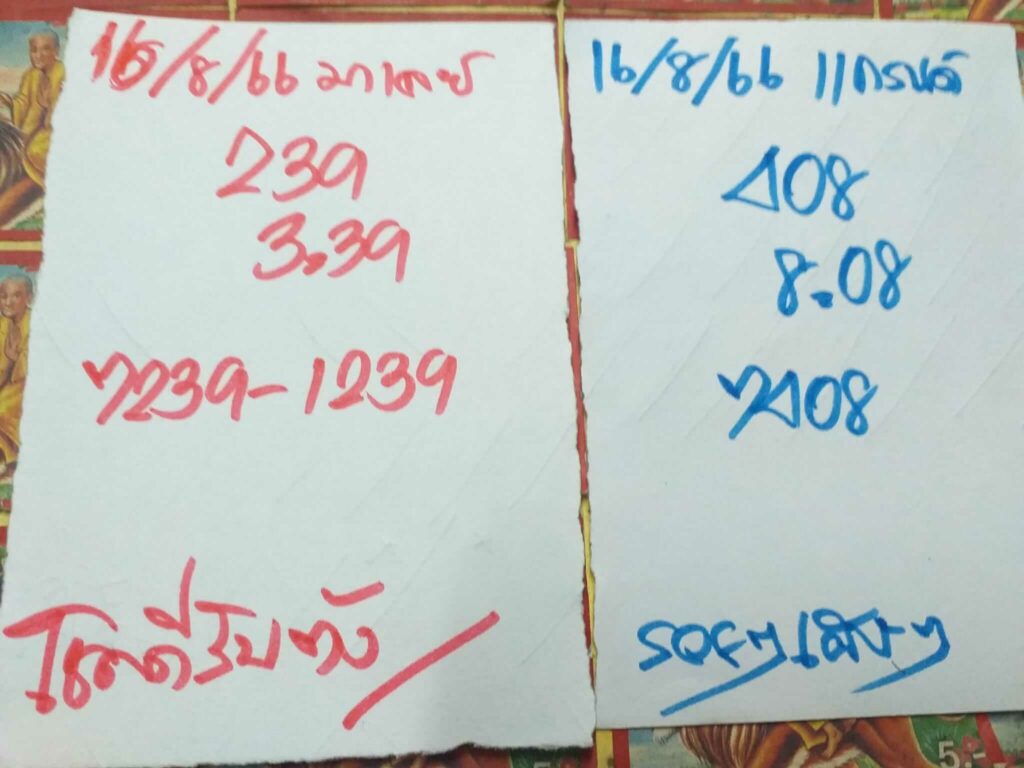 16/8/66 มาเลย์
239
3.39
7239-1239
โชคดีรับทรัพย์
16/8/66 แกรนด์
408
8.08
7408
รวยๆ เฮงๆ
5.-